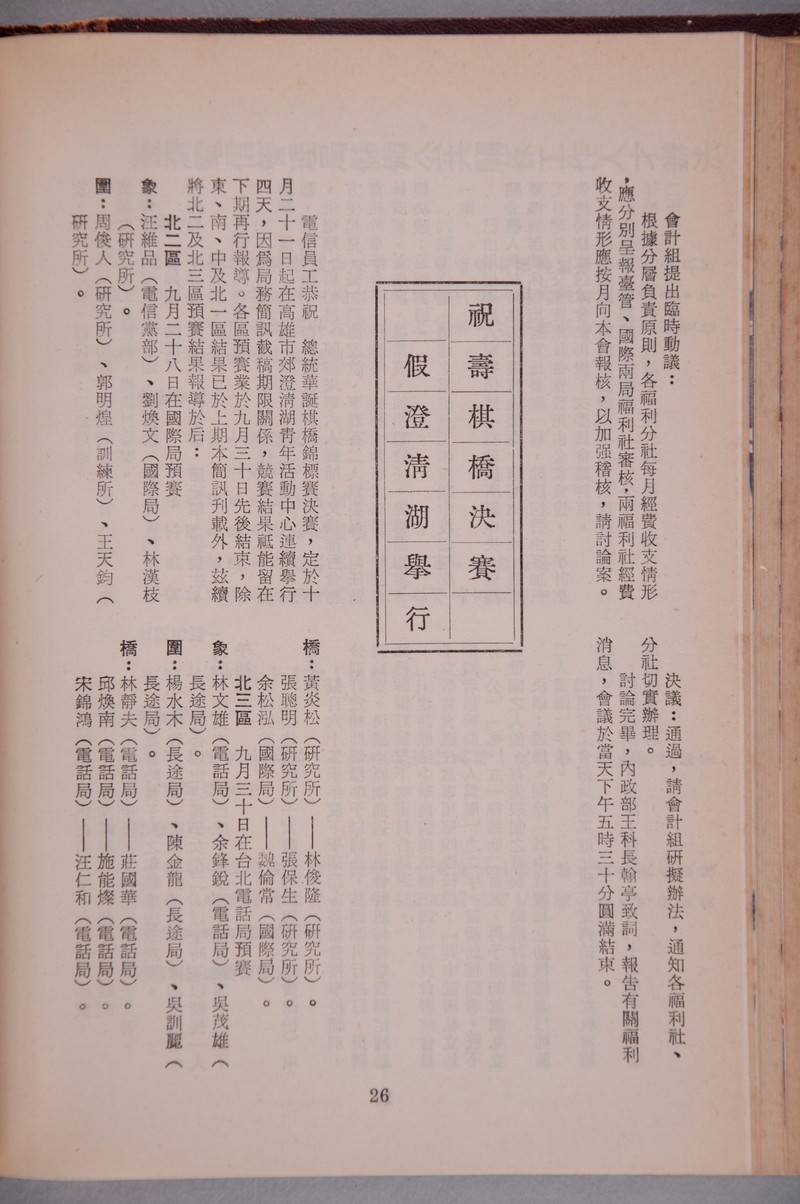 會計組提出臨時動議：
根據分層負責原則，各福利分社每月經費收支情形
，應分別呈報臺管、國際兩局福利社審核，兩福利社經費
收支情形應按月向本會報核，以加强稽核，請討論案。
決議：通過，請會計組研擬辦法，通知各福利社、
分社切實辦理。
討論完畢，內政部王科長翰亭致詞，報告有關福利
消息，會議於當天下午五時三十分圓滿結束。
祝壽棋橋決賽
假澄清湖舉行
電信員工恭祝　總統華誕棋橋錦標賽決賽，定於十
月二十一日起在高雄市郊澄清湖青年活動中心連續舉行
四天，因爲局務簡訊截稿期限關係，競賽結果祗能留在
下期再行報導。各區預賽業於九月三十日先後結束，除
東、南、中及北一區結果已於上期本簡訊刋載外，玆續
將北二及北三區預賽結果報導於后：
北二區　九月二十八日在國際局預賽
象：汪維品（電信黨部）、劉煥文（國際局）、林漢枝
（研究所）。
圍：周俊人（研究所）、郭明煌（訓練所）、王天鈞（
研究所）。
橋：黃炎松（研究所）——林俊隆（研究所）。
張聰明（研究所）——張保生（研究所）。
余松泓（國際局）——魏倫常（國際局）。
北三區　九月三十日在台北電話局預賽
象：林文雄（電話局）、余鋒銳（電話局）、吳茂雄（
長途局）。
圍：楊水木（長途局）、陳金龍（長途局）、吳訓麗（
長途局）。
橋：林靜夫（電話局）——莊國華（電話局）。
邱煥南（電話局）——施能燦（電話局）。
宋錦鴻（電話局）——汪仁和（電話局）。
26